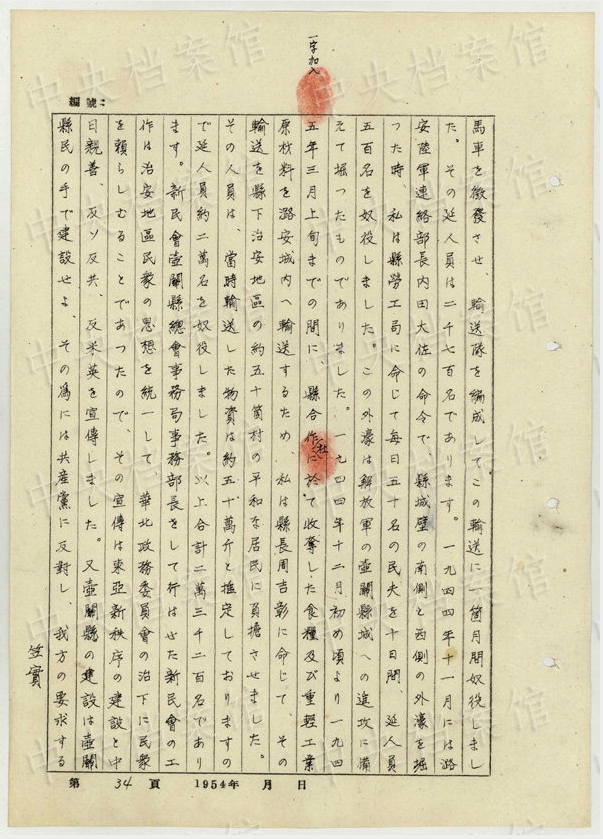 一字加入
編號:
馬車を徴發させ、輸送隊を編成してこの輸送に一箇月間奴役しまし
た。その延人員は二千七百名であります。一九四四年十一月には潞
安陸軍連絡部長内田大佐の命令で、縣城壁の南側と西側の外濠を掘
つた時、私は縣勞工局に命じて毎日五十名の民夫を十日間、延人員
五百名を奴役しました。この外濠は解放軍の壺關縣城への進攻に備
えて掘つたものでありました。一九四四年十二月初め頃より一九四
五年三月上旬までの間に、縣合作社に於て收奪した食糧及び重輕工業
原材料を潞安城内へ輸送するため、私は縣長周吉彰に命じて、その
輸送を縣下治安地區の約五十箇村の平和な居民に負擔させました。
その人員は、當時輸送した物資は約五十萬斤と推定しておりますの
で延人員約二萬名を奴役しました。以上合計二萬三千二百名であり
ます。新民會壺關縣總會事務局事務部長をして行はせた新民會の工
作は治安地區民衆の思想を統一して、華北政務委員會の治下に民衆
を賴らしむることであつたので、その宣傳は東亞新秩序の建設と中
日親善、反ソ反共、反米英を宣傳しました。又壺關縣の建設は壺關
縣民の手で建設せよ、その爲には共産黨に反對し、我方の要求する
笠實
第 34 頁 1954年 月 日
中央档案馆